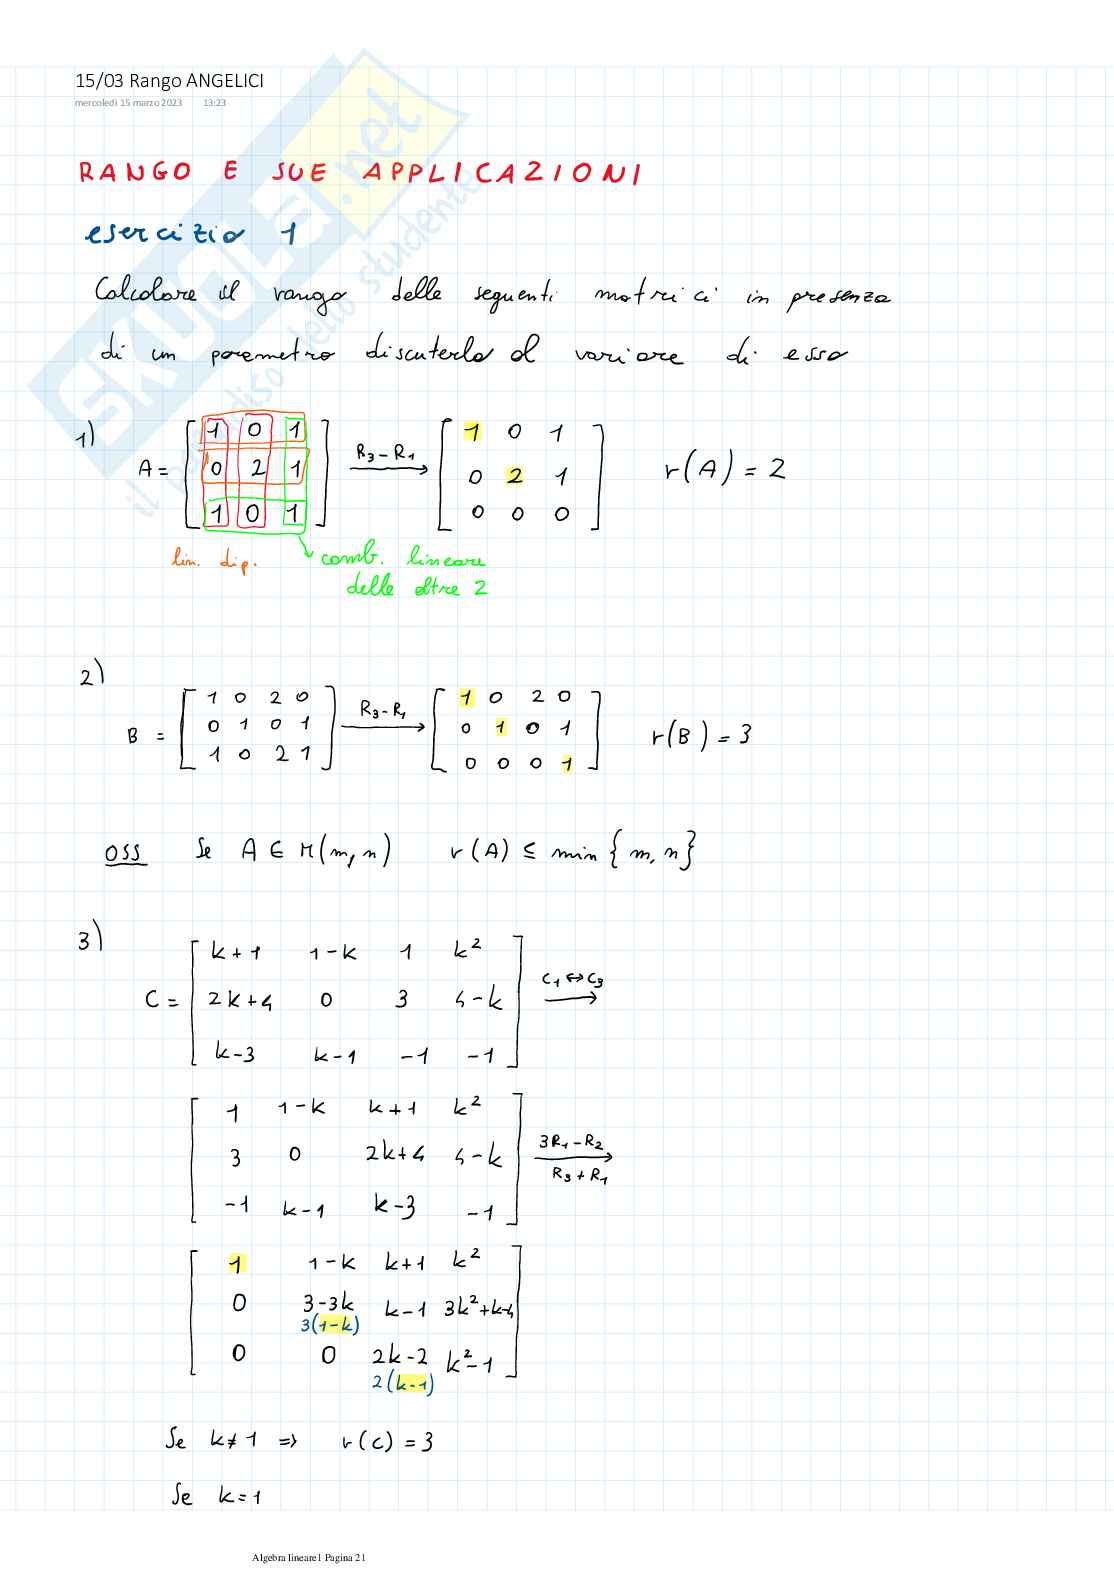 15/03 Rango ANGELICI
mercoledì 15 marzo 2023 13:23
SKUOLA.net
il paradiso dello studente
RANGO E SUE APPLICAZIONI
esercizio 1
Calcolare il rango delle seguenti matrici in presenza
di un parametro discuterlo al variare di esso
1)
A = [ 1 0 1 ] R3-R1 → [ 1 0 1 ] r(A) = 2
[ 0 2 1 ] [ 0 2 1 ]
[ 1 0 1 ] [ 0 0 0 ]
lin. dip. comb. lineare
delle altre 2
2)
B = [ 1 0 2 0 ] R3-R1 → [ 1 0 2 0 ] r(B) = 3
[ 0 1 0 1 ] [ 0 1 0 1 ]
[ 1 0 2 1 ] [ 0 0 0 1 ]
OSS Se A ∈ M(m,n) r(A) ≤ min{m,n}
3)
C = [ k+1 1-k 1 k² ] C1↔C3 →
[ 2k+4 0 3 4-k ]
[ k-3 k-1 -1 -1 ]
[ 1 1-k k+1 k² ]
[ 3 0 2k+4 4-k ] 3R1-R2 → R3+R1
[ -1 k-1 k-3 -1 ]
[ 1 1-k k+1 k² ]
[ 0 3-3k k-1 3k²+k-4 ]
3(1-k)
[ 0 0 2k-2 k²-1 ]
2(k-1)
Se k≠1 => r(C) = 3
Se k=1
Algebra lineare1 Pagina 21